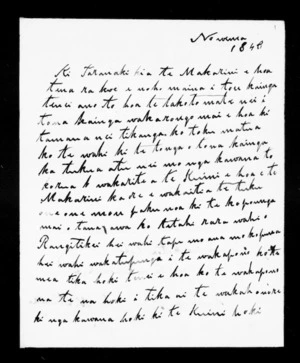 Nowema
1848
Ki Taranaki kia te Makarini e hoa
tena ra koe e noho maina i tou kainga
tenei ano to hoa te kakoto mate nei i
tona kainga wakarongo mai e hoa ki
tamana nei tikanga ko toku matua
ko te wahi ki te tonga o tona kainga
ka tukua atu nei mo nga kawana to
korua ko wakarita a te Kuini e hoa e te
Makarini kaore e wakaritia te tuku
one one mou paku noa ki te kopunga
mai o tana ko ko katahi rara wahi o
Rangitikei hei wahi tapu mo ana mokopuna
hei wahi wakatapunga i te wakapono ko te
mea tika hoki tenei e hoa ko ta wakapono
na te na hoki i tika ai te wakahonore
ki nga kawana hoki ki te Kuini hoki